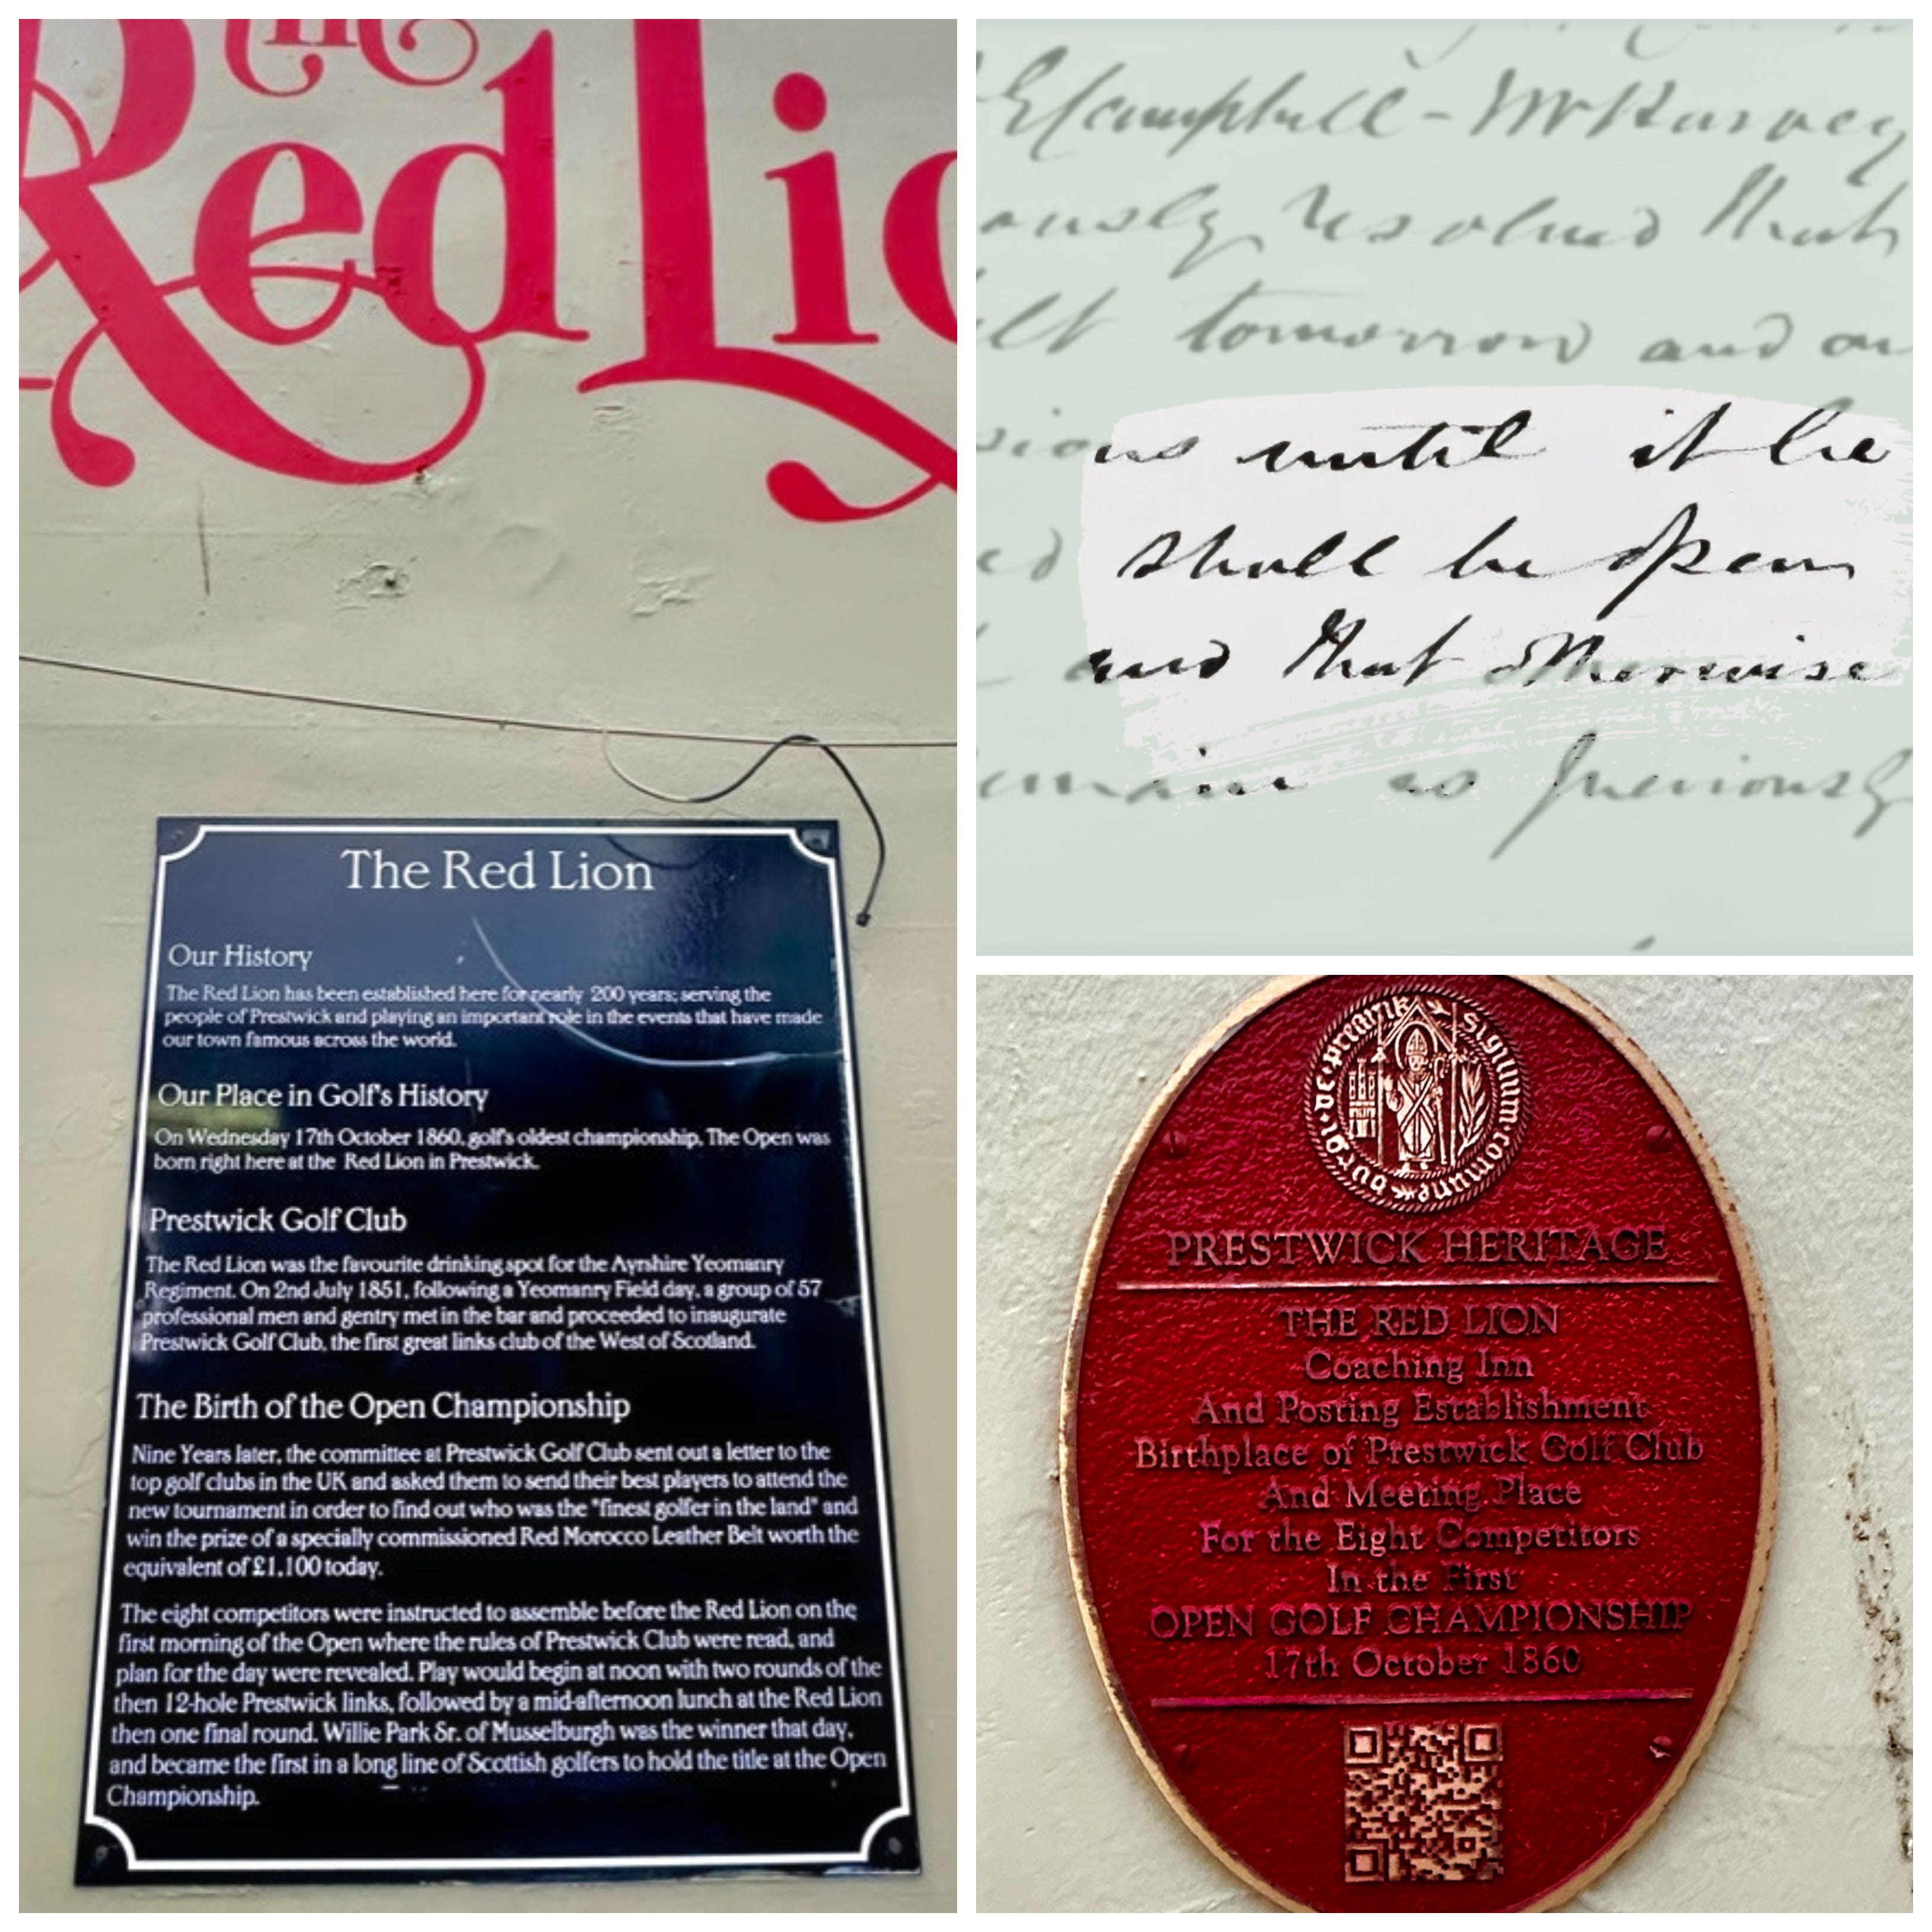 the
Red Lio
The Red Lion
Our History
The Red Lion has been established here for nearly 200 years; serving the
people of Prestwick and playing an important role in the events that have made
our town famous across the world.
Our Place in Golf's History
On Wednesday 17th October 1860, golf's oldest championship, The Open was
born right here at the Red Lion in Prestwick.
Prestwick Golf Club
The Red Lion was the favourite drinking spot for the Ayrshire Yeomanry
Regiment. On 2nd July 1851, following a Yeomanry Field day, a group of 57
professional men and gentry met in the bar and proceeded to inaugurate
Prestwick Golf Club, the first great links club of the West of Scotland.
The Birth of the Open Championship
Nine Years later, the committee at Prestwick Golf Club sent out a letter to the
top golf clubs in the UK and asked them to send their best players to attend the
new tournament in order to find out who was the "finest golfer in the land" and
win the prize of a specially commissioned Red Morocco Leather Belt worth the
equivalent of £1,100 today.
The eight competitors were instructed to assemble before the Red Lion on the
first morning of the Open where the rules of Prestwick Club were read, and
plan for the day were revealed. Play would begin at noon with two rounds of the
then 12-hole Prestwick links, followed by a mid-afternoon lunch at the Red Lion
then one final round. Willie Park Sr. of Musselburgh was the winner that day,
and became the first in a long line of Scottish golfers to hold the title at the Open
Championship.
Campbell - Mr Harvey
ously resolved that
elt tomorrow and on
sions until it be
ed shall be open
and that otherwise
emain as previously
PRESTWICK HERITAGE
THE RED LION
Coaching Inn
And Posting Establishment
Birthplace of Prestwick Golf Club
And Meeting Place
For the Eight Competitors
In the First
OPEN GOLF CHAMPIONSHIP
17th October 1860